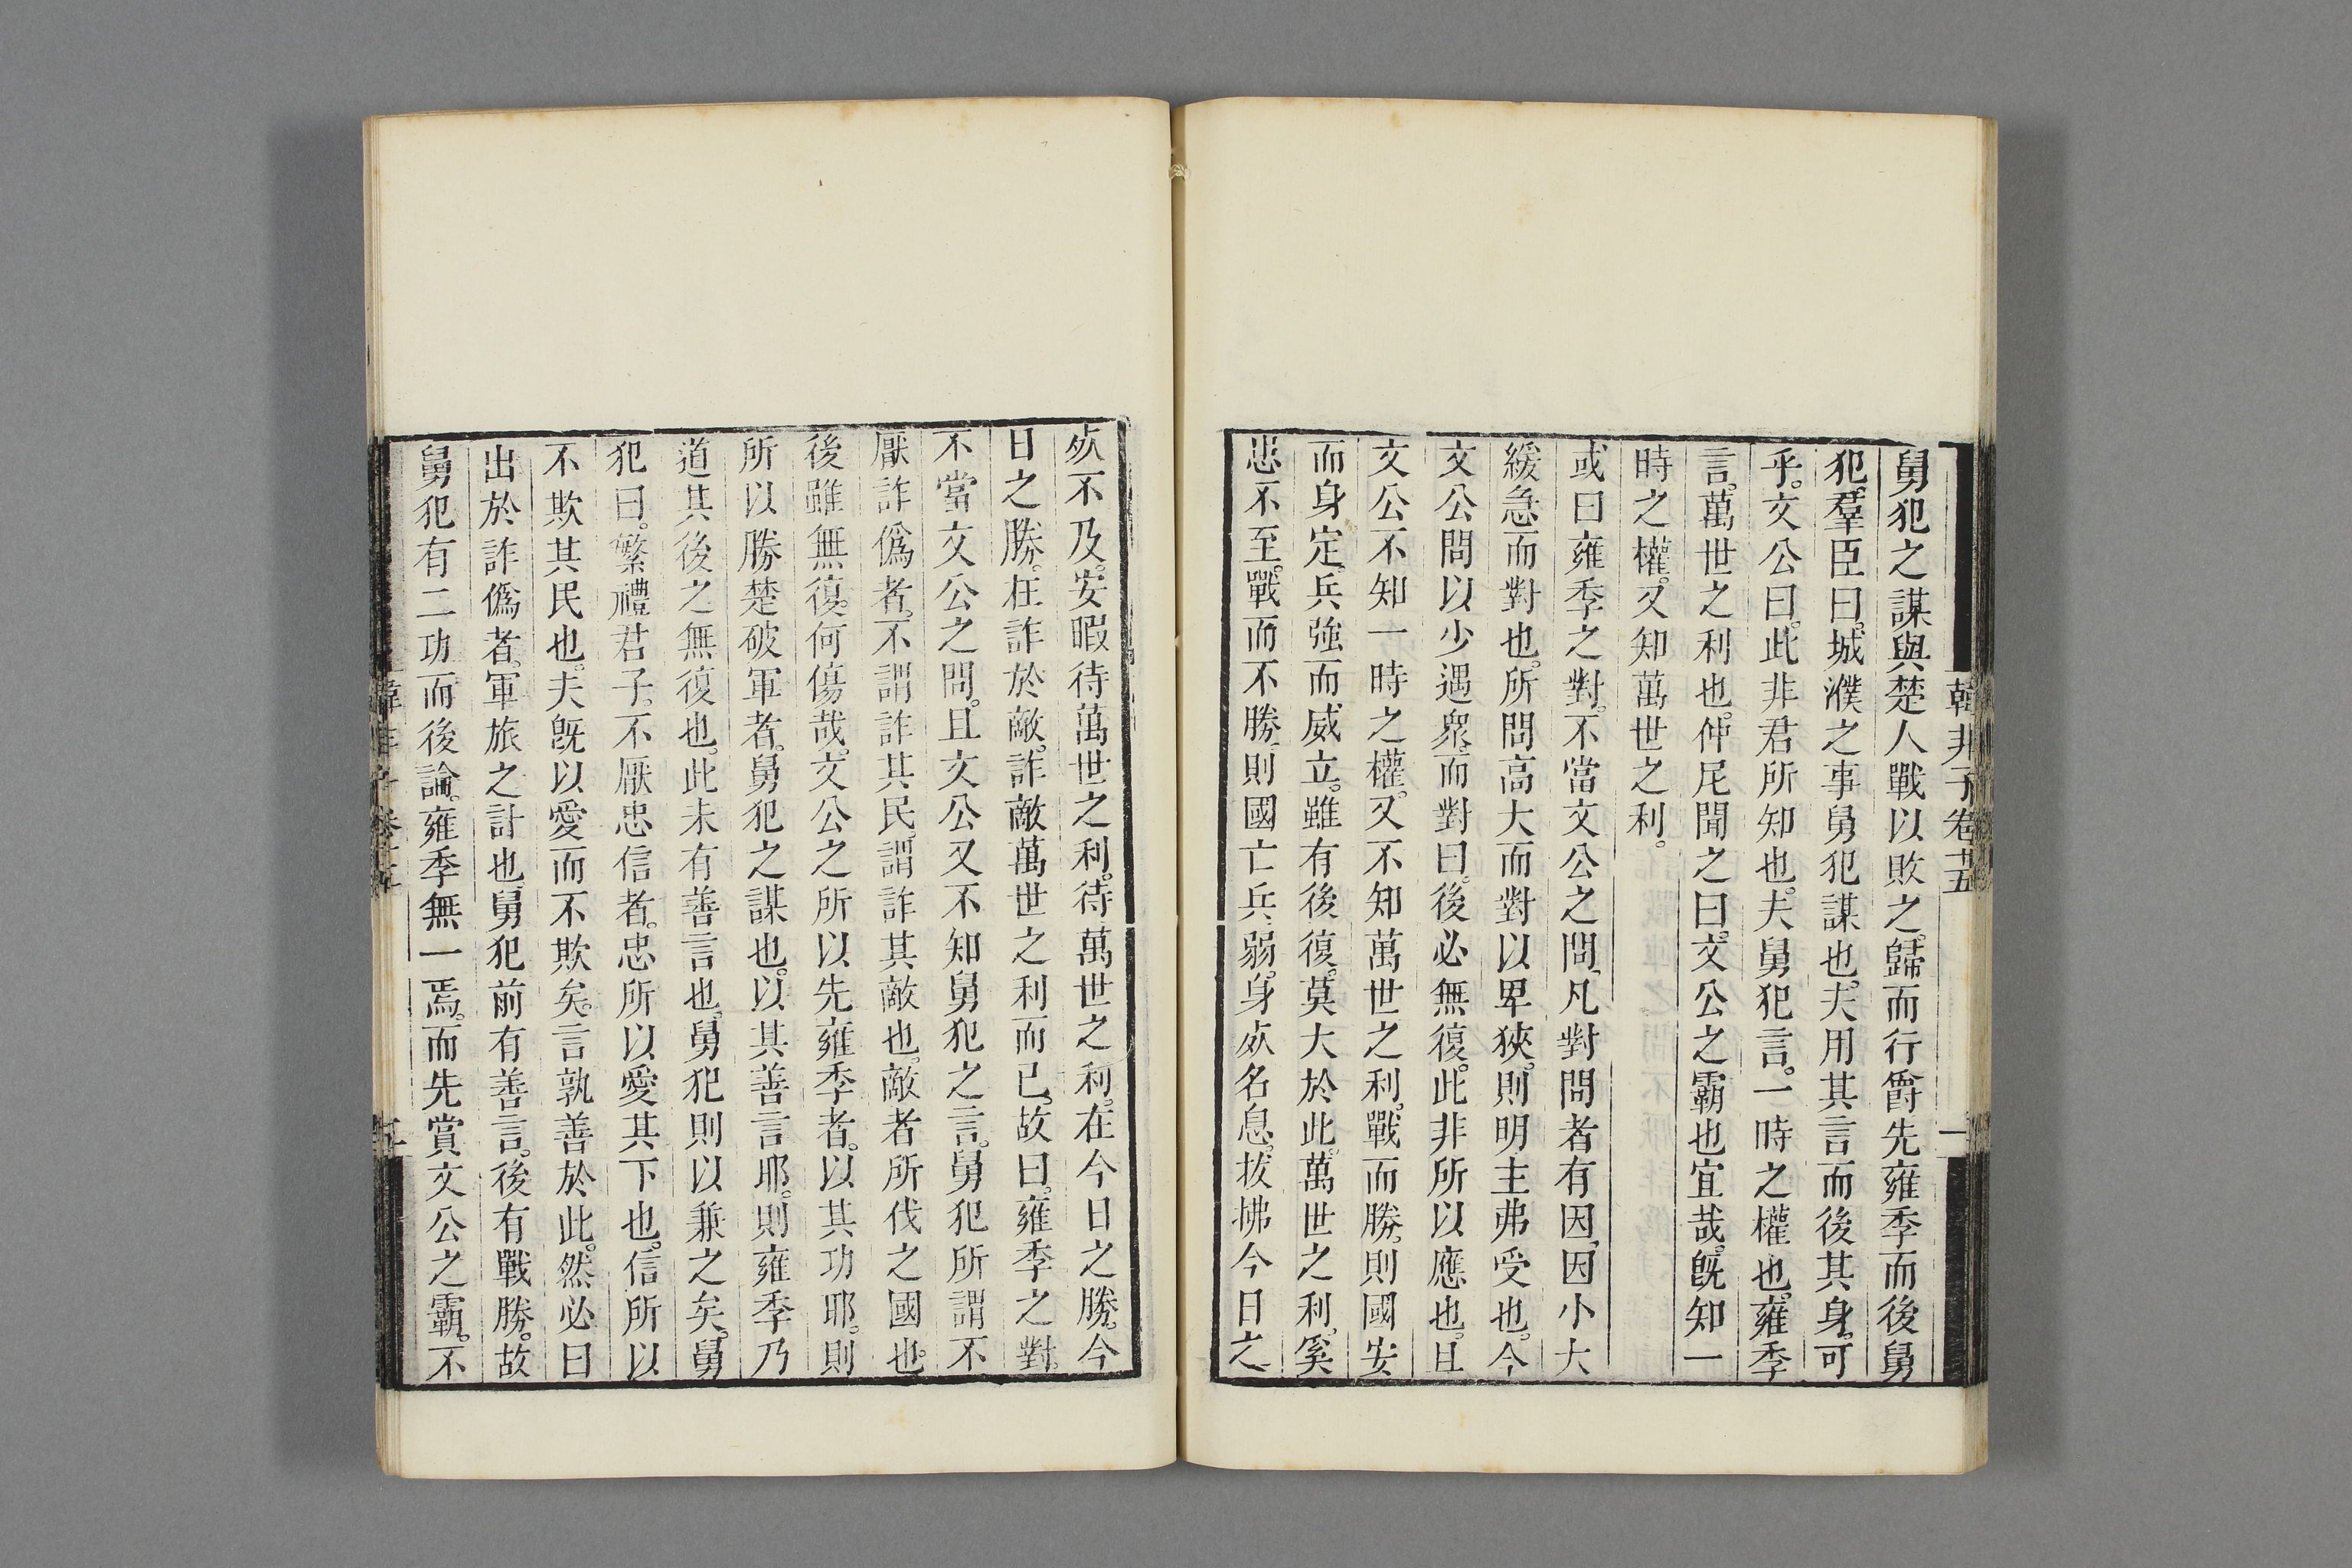 韓非子卷十五
一
舅犯之謀與楚人戰以敗之。歸而行爵先雍季而後舅
犯。羣臣曰。城濮之事舅犯謀也。夫用其言而後其身。可
乎。文公曰。此非君所知也。夫舅犯言。一時之權也。雍季
言。萬世之利也。仲尼聞之曰。文公之霸也宜哉。旣知一
時之權。又知萬世之利。
或曰雍季之對。不當文公之問。凡對問者有因。因小大
緩急而對也。所問高大而對以卑狹。則明主弗受也。今
文公問以少遇衆。而對曰。後必無復。此非所以應也。且
文公不知一時之權。又不知萬世之利。戰而勝。則國安
而身定。兵強而威立。雖有後復。莫大於此。萬世之利。奚
患不至。戰而不勝。則國亡兵弱。身死名息。拔拂今日之
死不及。安暇待萬世之利。待萬世之利。在今日之勝。今
日之勝。在詐於敵。詐敵萬世之利而已。故曰。雍季之對。
不當文公之問。且文公又不知舅犯之言。舅犯所謂不
厭詐僞者。不謂詐其民。謂詐其敵也。敵者所伐之國也。
後雖無復。何傷哉。文公之所以先雍季者。以其功耶。則
所以勝楚破軍者。舅犯之謀也。以其善言耶。則雍季乃
道其後之無復也。此未有善言也。舅犯則以兼之矣。舅
犯曰。繁禮君子。不厭忠信者。忠所以愛其下也。信所以
不欺其民也。夫旣以愛而不欺矣。言孰善於此。然必曰
出於詐僞者。軍旅之計也。舅犯前有善言。後有戰勝。故
舅犯有二功而後論。雍季無一焉。而先賞文公之霸。不